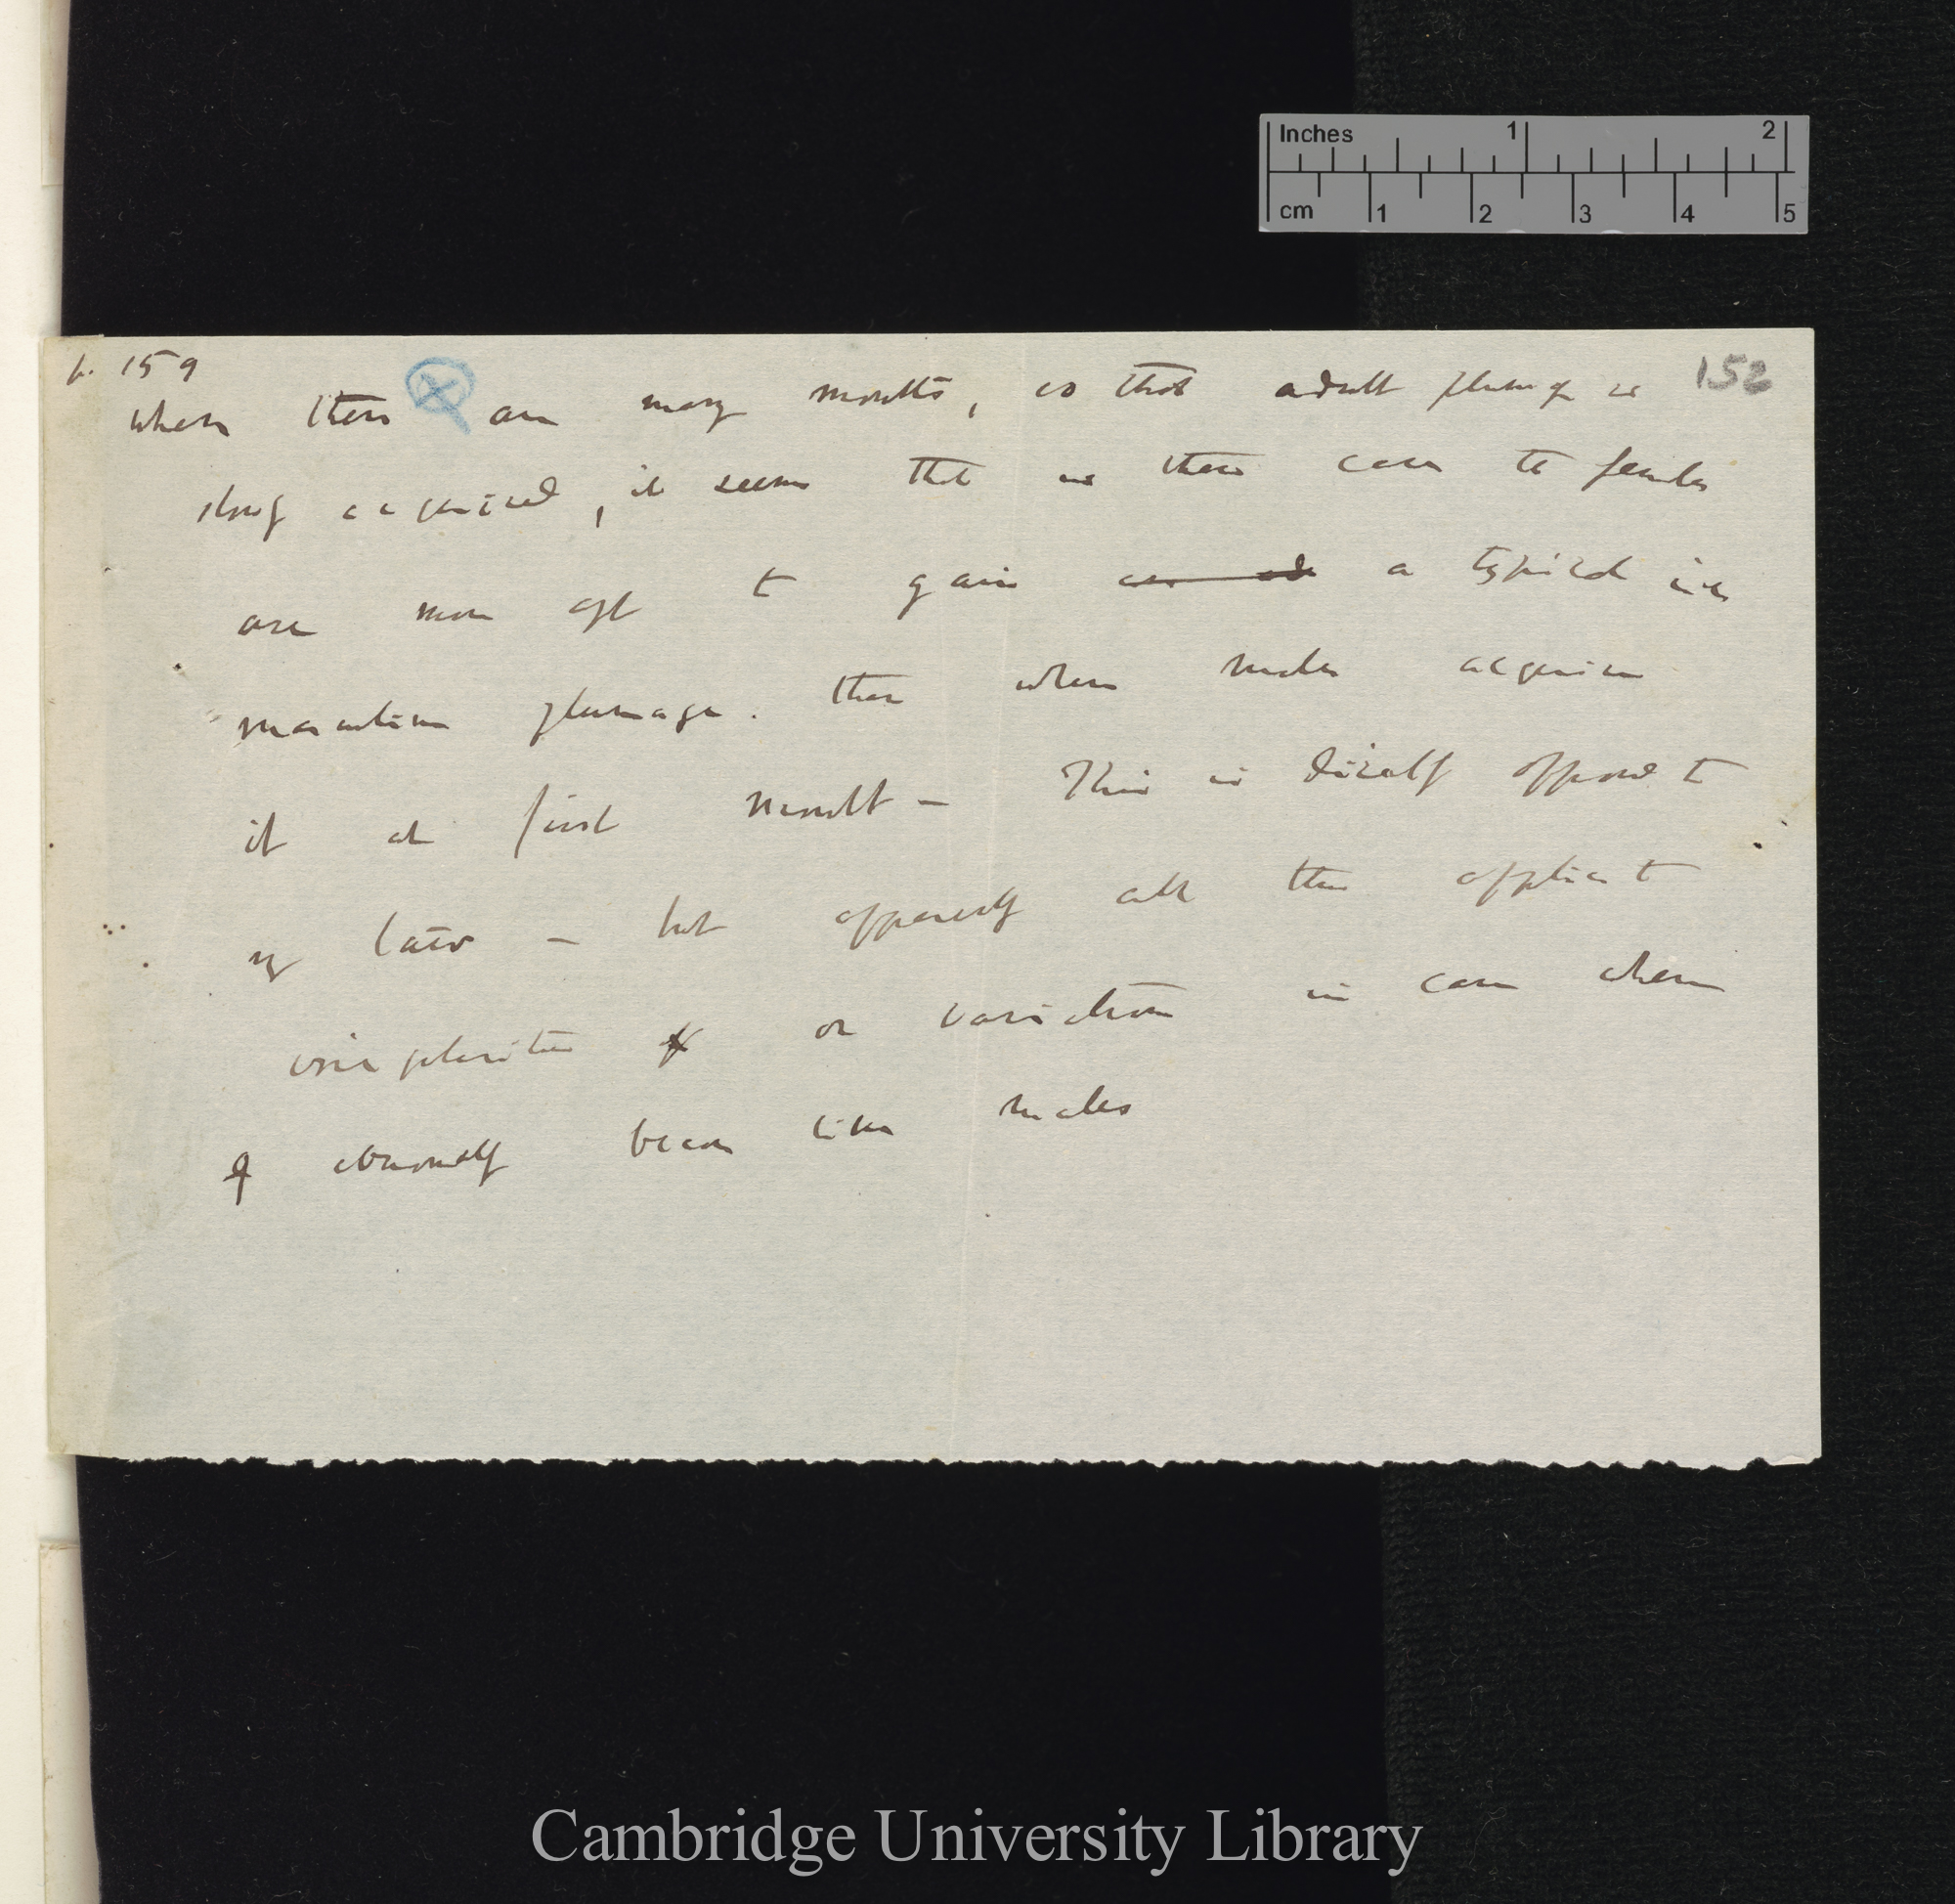 Inches 1 2
cm 1 2 3 4 5
p. 159
152
When there are many moults, so that adult plumage is
slowly acquired, it seems that in these cases the females
are more apt to gain a typical
masculine plumage. than when males acquire
it at first moult — This is directly opposed to
my law — but apparently all this applies to
or variation in case when
♀ abnormally become like males
Cambridge University Library